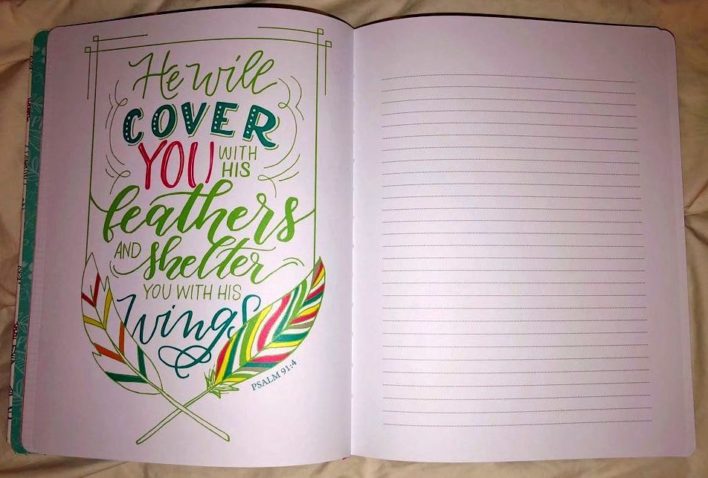 He will
COVER
YOU WITH HIS
feathers
AND shelter
YOU WITH HIS
wings
PSALM 91:4